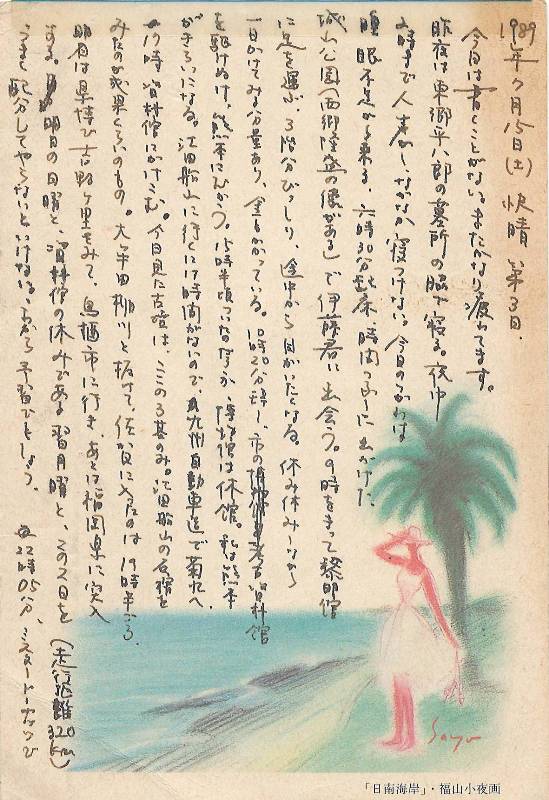 1989年7月15日(土) 快晴 第3日.
今日は書くことがない。またかなり疲れてます。
昨夜は東郷平八郎の墓所の脇で寝る。夜中
2時まで人声がし、なかなか寝つけない。今日のつかれは
睡眠不足から来る。六時30分起床、時間つぶしに出かけた
城山公園(西郷隆盛の像がある)で伊藤君に出会う。9時をまって黎明館
に足を運ぶ。3階分びっしり、途中から目がいたくなる。休み休みしながら
一日かけてみる分量あり、金もかかっている。10時20分辞し、市の考古資料館
を駆けぬけ、熊本にむかう。15時半頃ついたのだが、博物館は休館。私は熊本
がきらいになる。江田船山に行くには時間がないので、九州自動車道で菊水へ
17時 資料館にかけこむ。今日見た古墳は、ここの3基のみ。江田船山の石棺を
みたのが成果くらいのもの。大牟田 柳川と抜けて、佐賀に入ったのは19時半ごろ。
明日は県博と吉野ヶ里をみて、鳥栖市に行き、あとは福岡県に突入
する。明日の日曜と、資料館の休みである翌月曜と、この2日を
うまく配分してやらないといけない。だから予習でもしよう。
22時05分、ミスタードーナツにて
(走行距離320km)
Sayo
「日南海岸」・福山小夜画